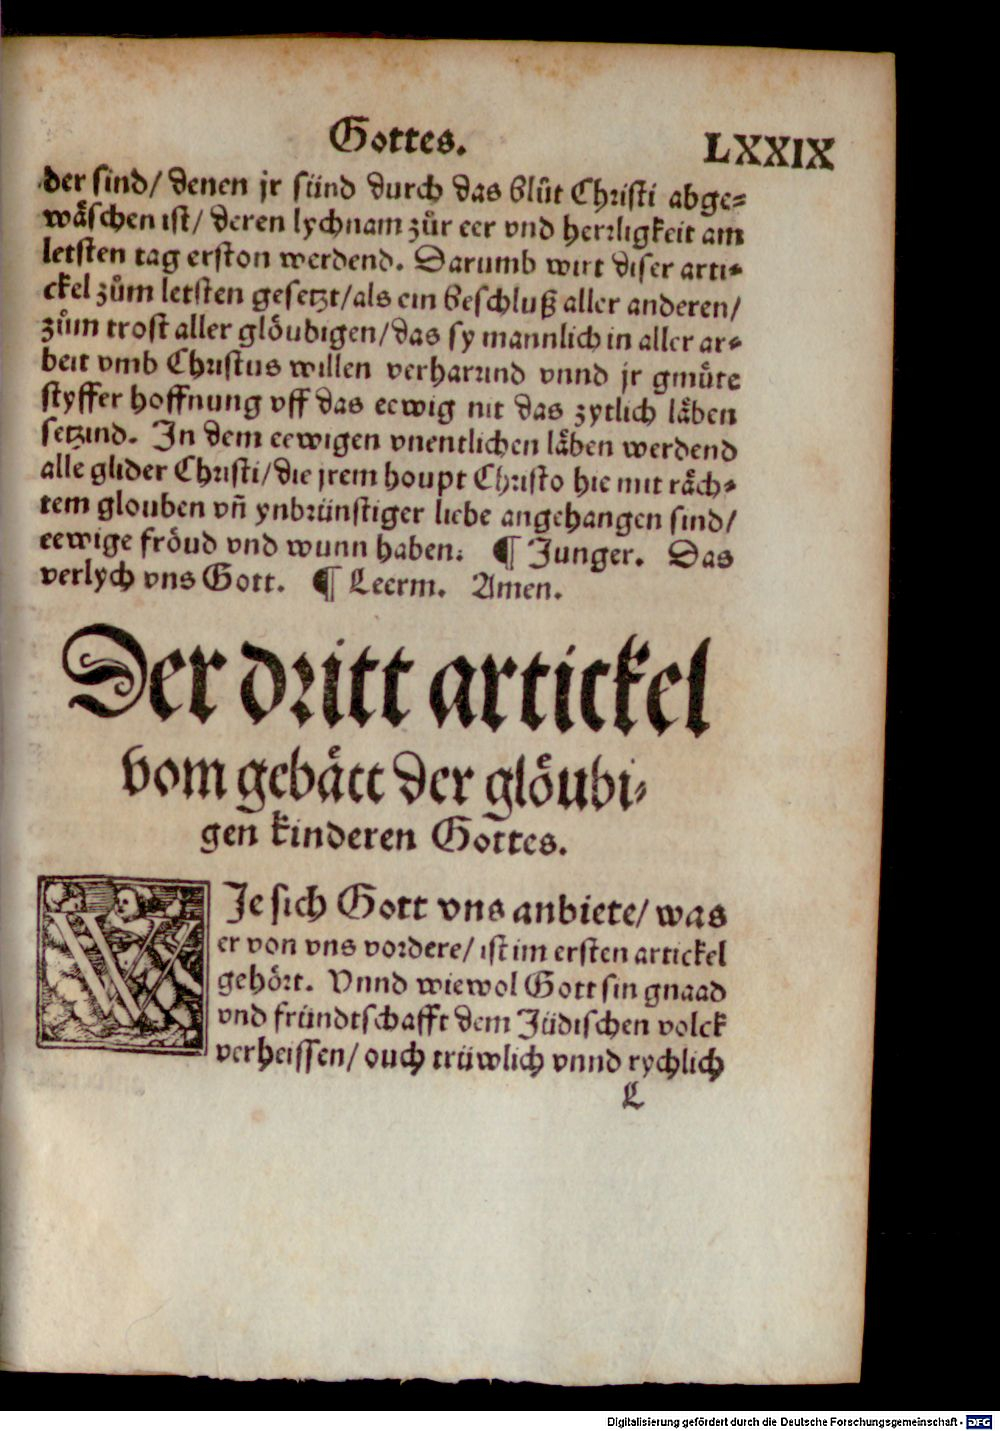 Gottes. LXXIX
der sind/ denen jr sünd durch das blůt Christi abge-
wäschen ist/ deren lychnam zůr eer vnd herrligkeit am
letsten tag erston werdend. Darumb wirt diser arti-
ckel zům letsten gesetzt/als ein beschluß aller anderen/
zům trost aller glöubigen/das sy mannlich in aller ar-
beit vmb Christus willen verharrind vnnd jr gmüte
styffer hoffnung vff das eewig nit das zytlich läben
setzind. In dem eewigen vnentlichen läben werdend
alle glider Christi/die jrem houpt Christo hie mit räch-
tem glouben vñ ynbrünstiger liebe angehangen sind/
eewige fröud vnd wunn haben. ¶ Junger. Das
verlych vns Gott. ¶ Leerm. Amen.
Der dritt artickel
vom gebätt der glöubi-
gen kinderen Gottes.
WJe sich Gott vns anbiete/ was
er von vns vordere/ ist im ersten artickel
gehört. Vnnd wiewol Gott sin gnaad
vnd fründtschafft dem Jüdischen volck
verheissen/ ouch trüwlich vnnd rychlich
L
Digitalisierung gefördert durch die Deutsche Forschungsgemeinschaft - DFG